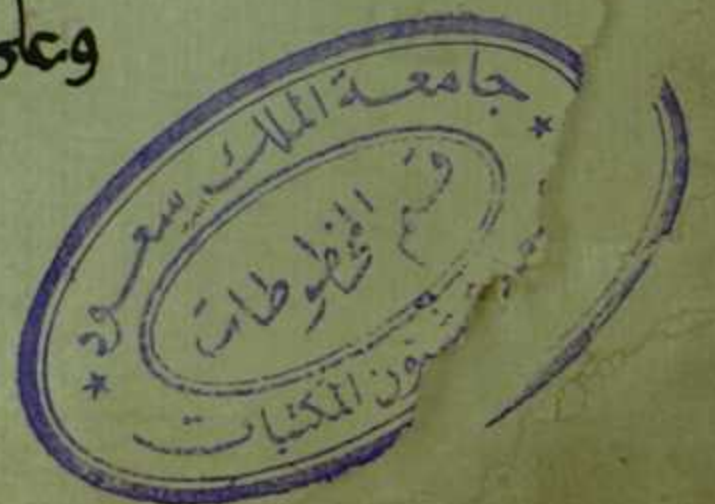 وعلى
جامعة الملك سعود
قسم المخطوطات
شئون المكتبات